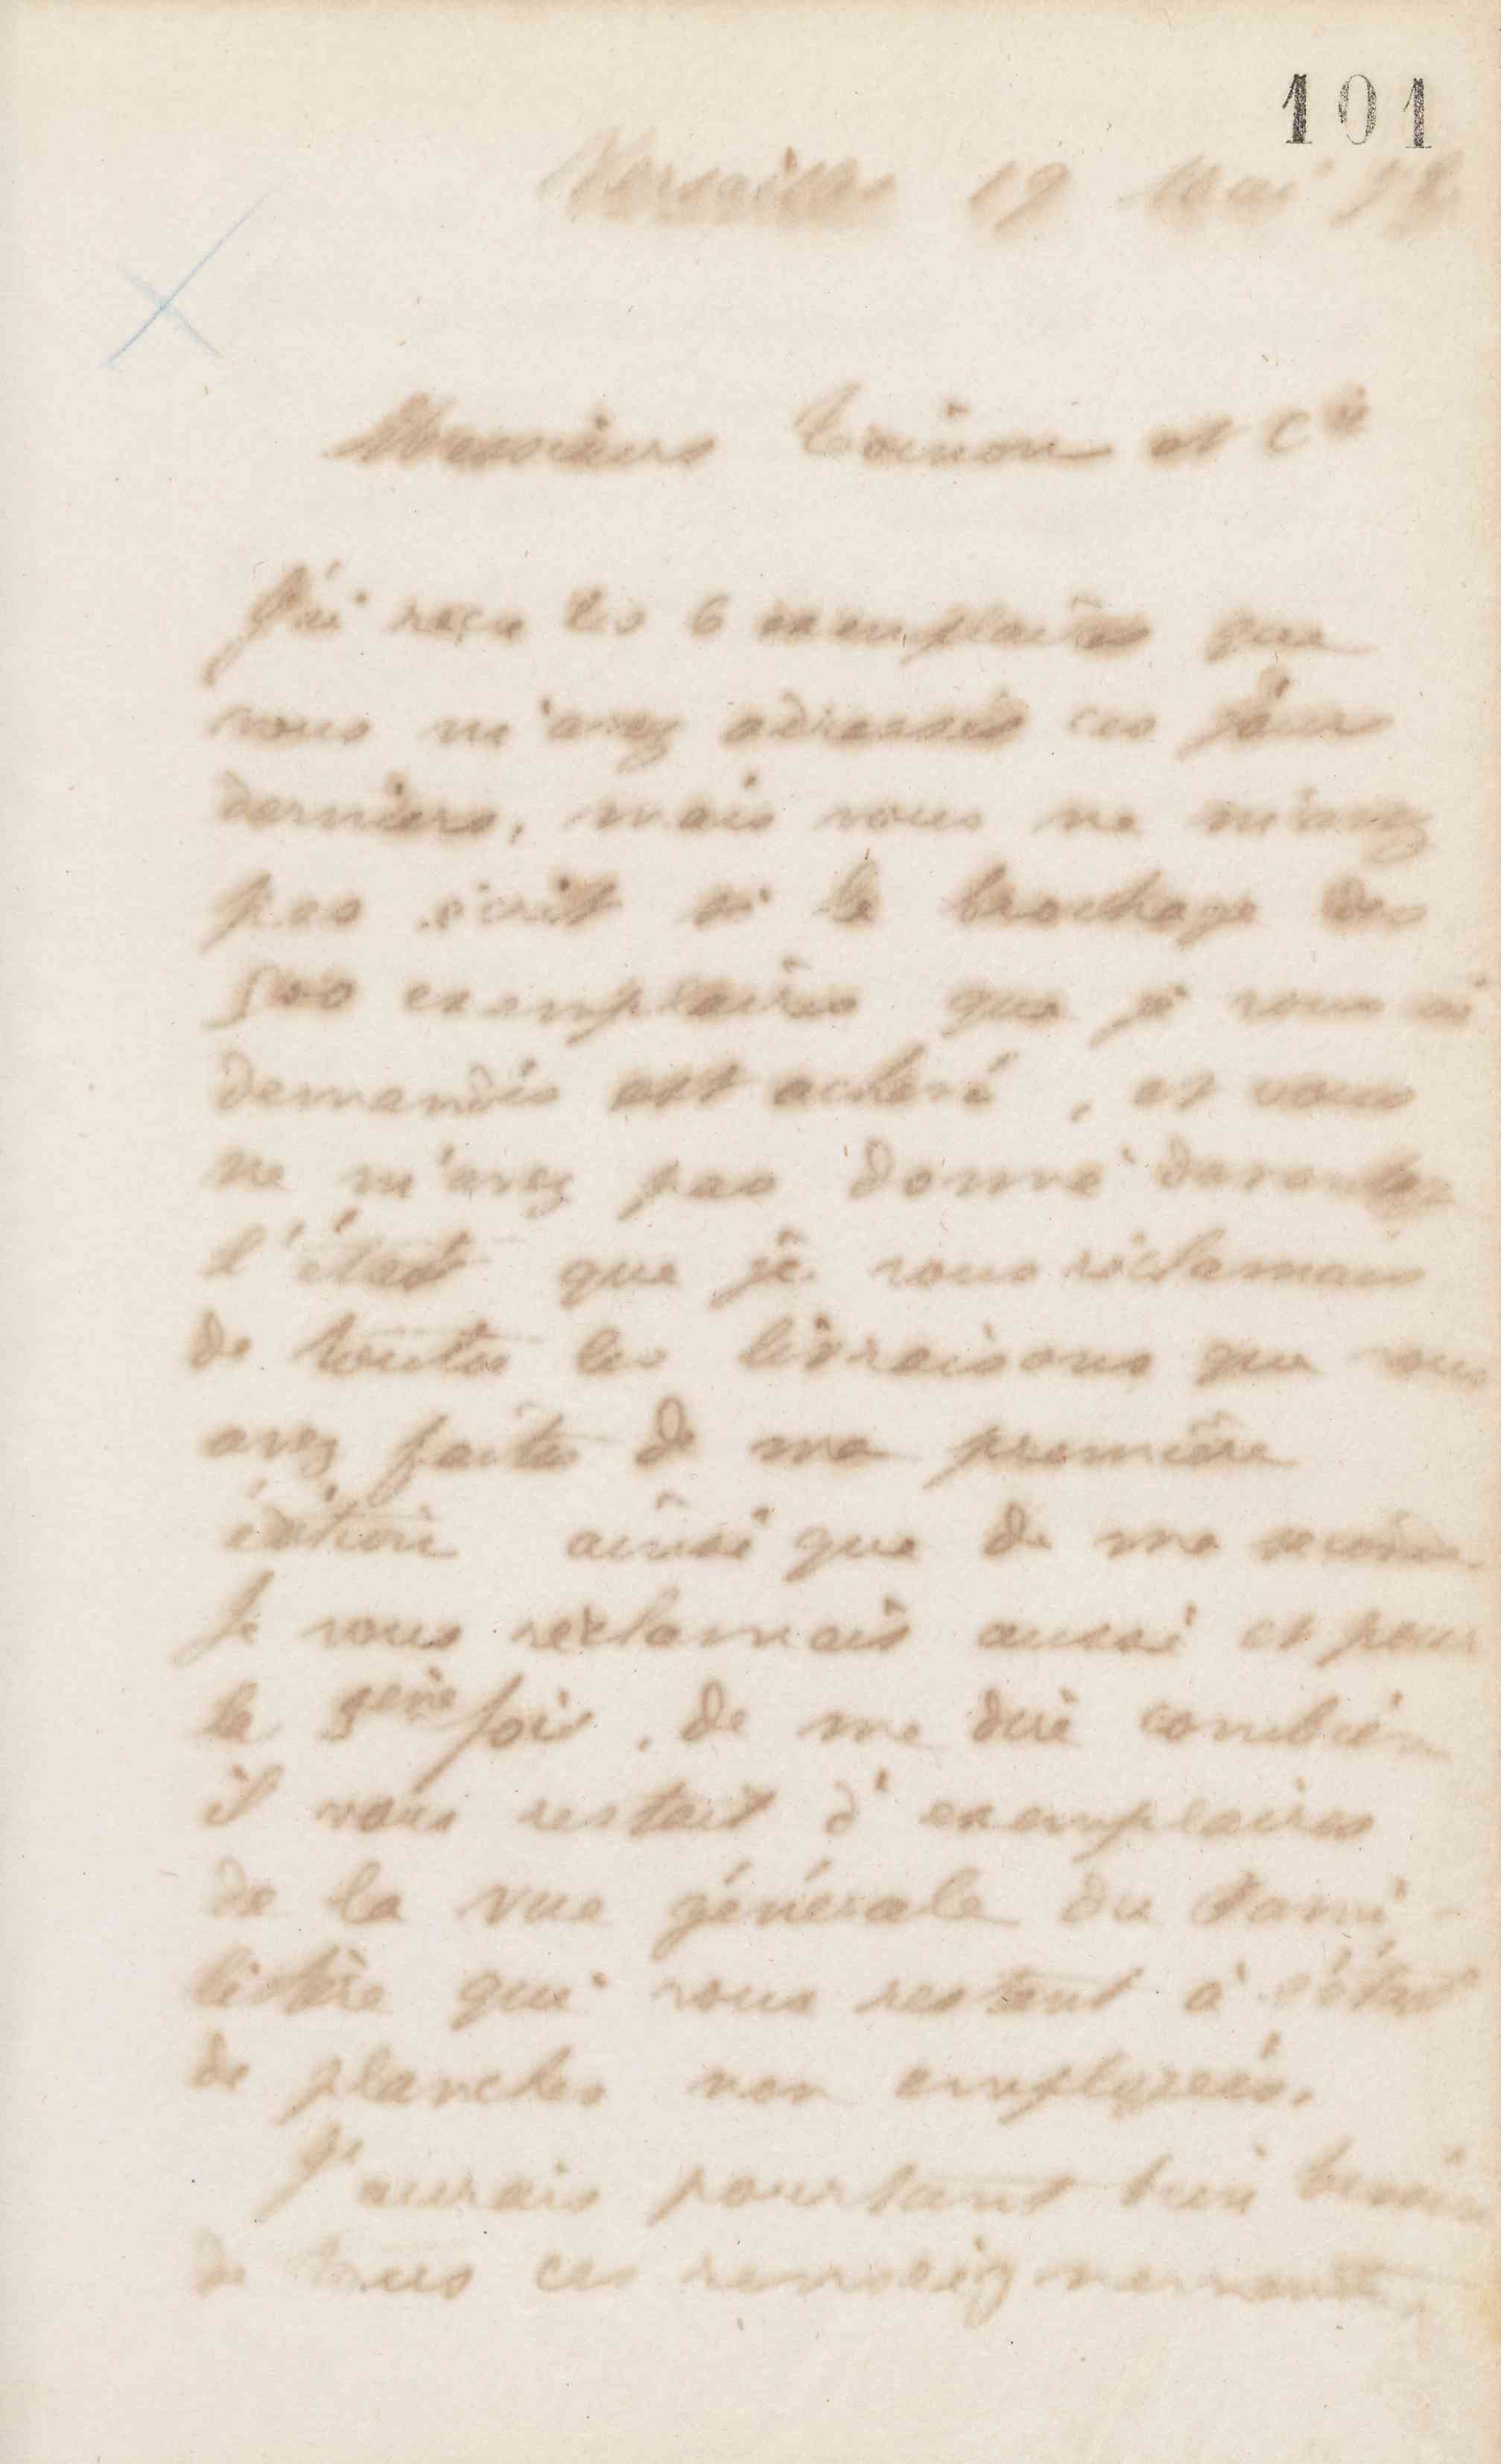 101
Versailles 19 Mai 72
Messieurs Toinon et Cie
J'ai reçu les 6 exemplaires que
vous m'avez adressés ces jours
derniers, mais vous ne m'avez
pas écrit si le brochage des
500 exemplaires que je vous ai
demandés est achevé, et vous
ne m'avez pas donné davantage
l'état que je vous réclamais
de toutes les livraisons que vous
avez faites de ma première
édition ainsi que de ma seconde
Je vous réclamais aussi et pour
la 3eme fois, de me dire combien
il vous restait d'exemplaires
de la vue générale du Fami-
listère qui vous restent à l'état
de planches non employées.
J'aurais pourtant bien besoin
de tous ces renseignements